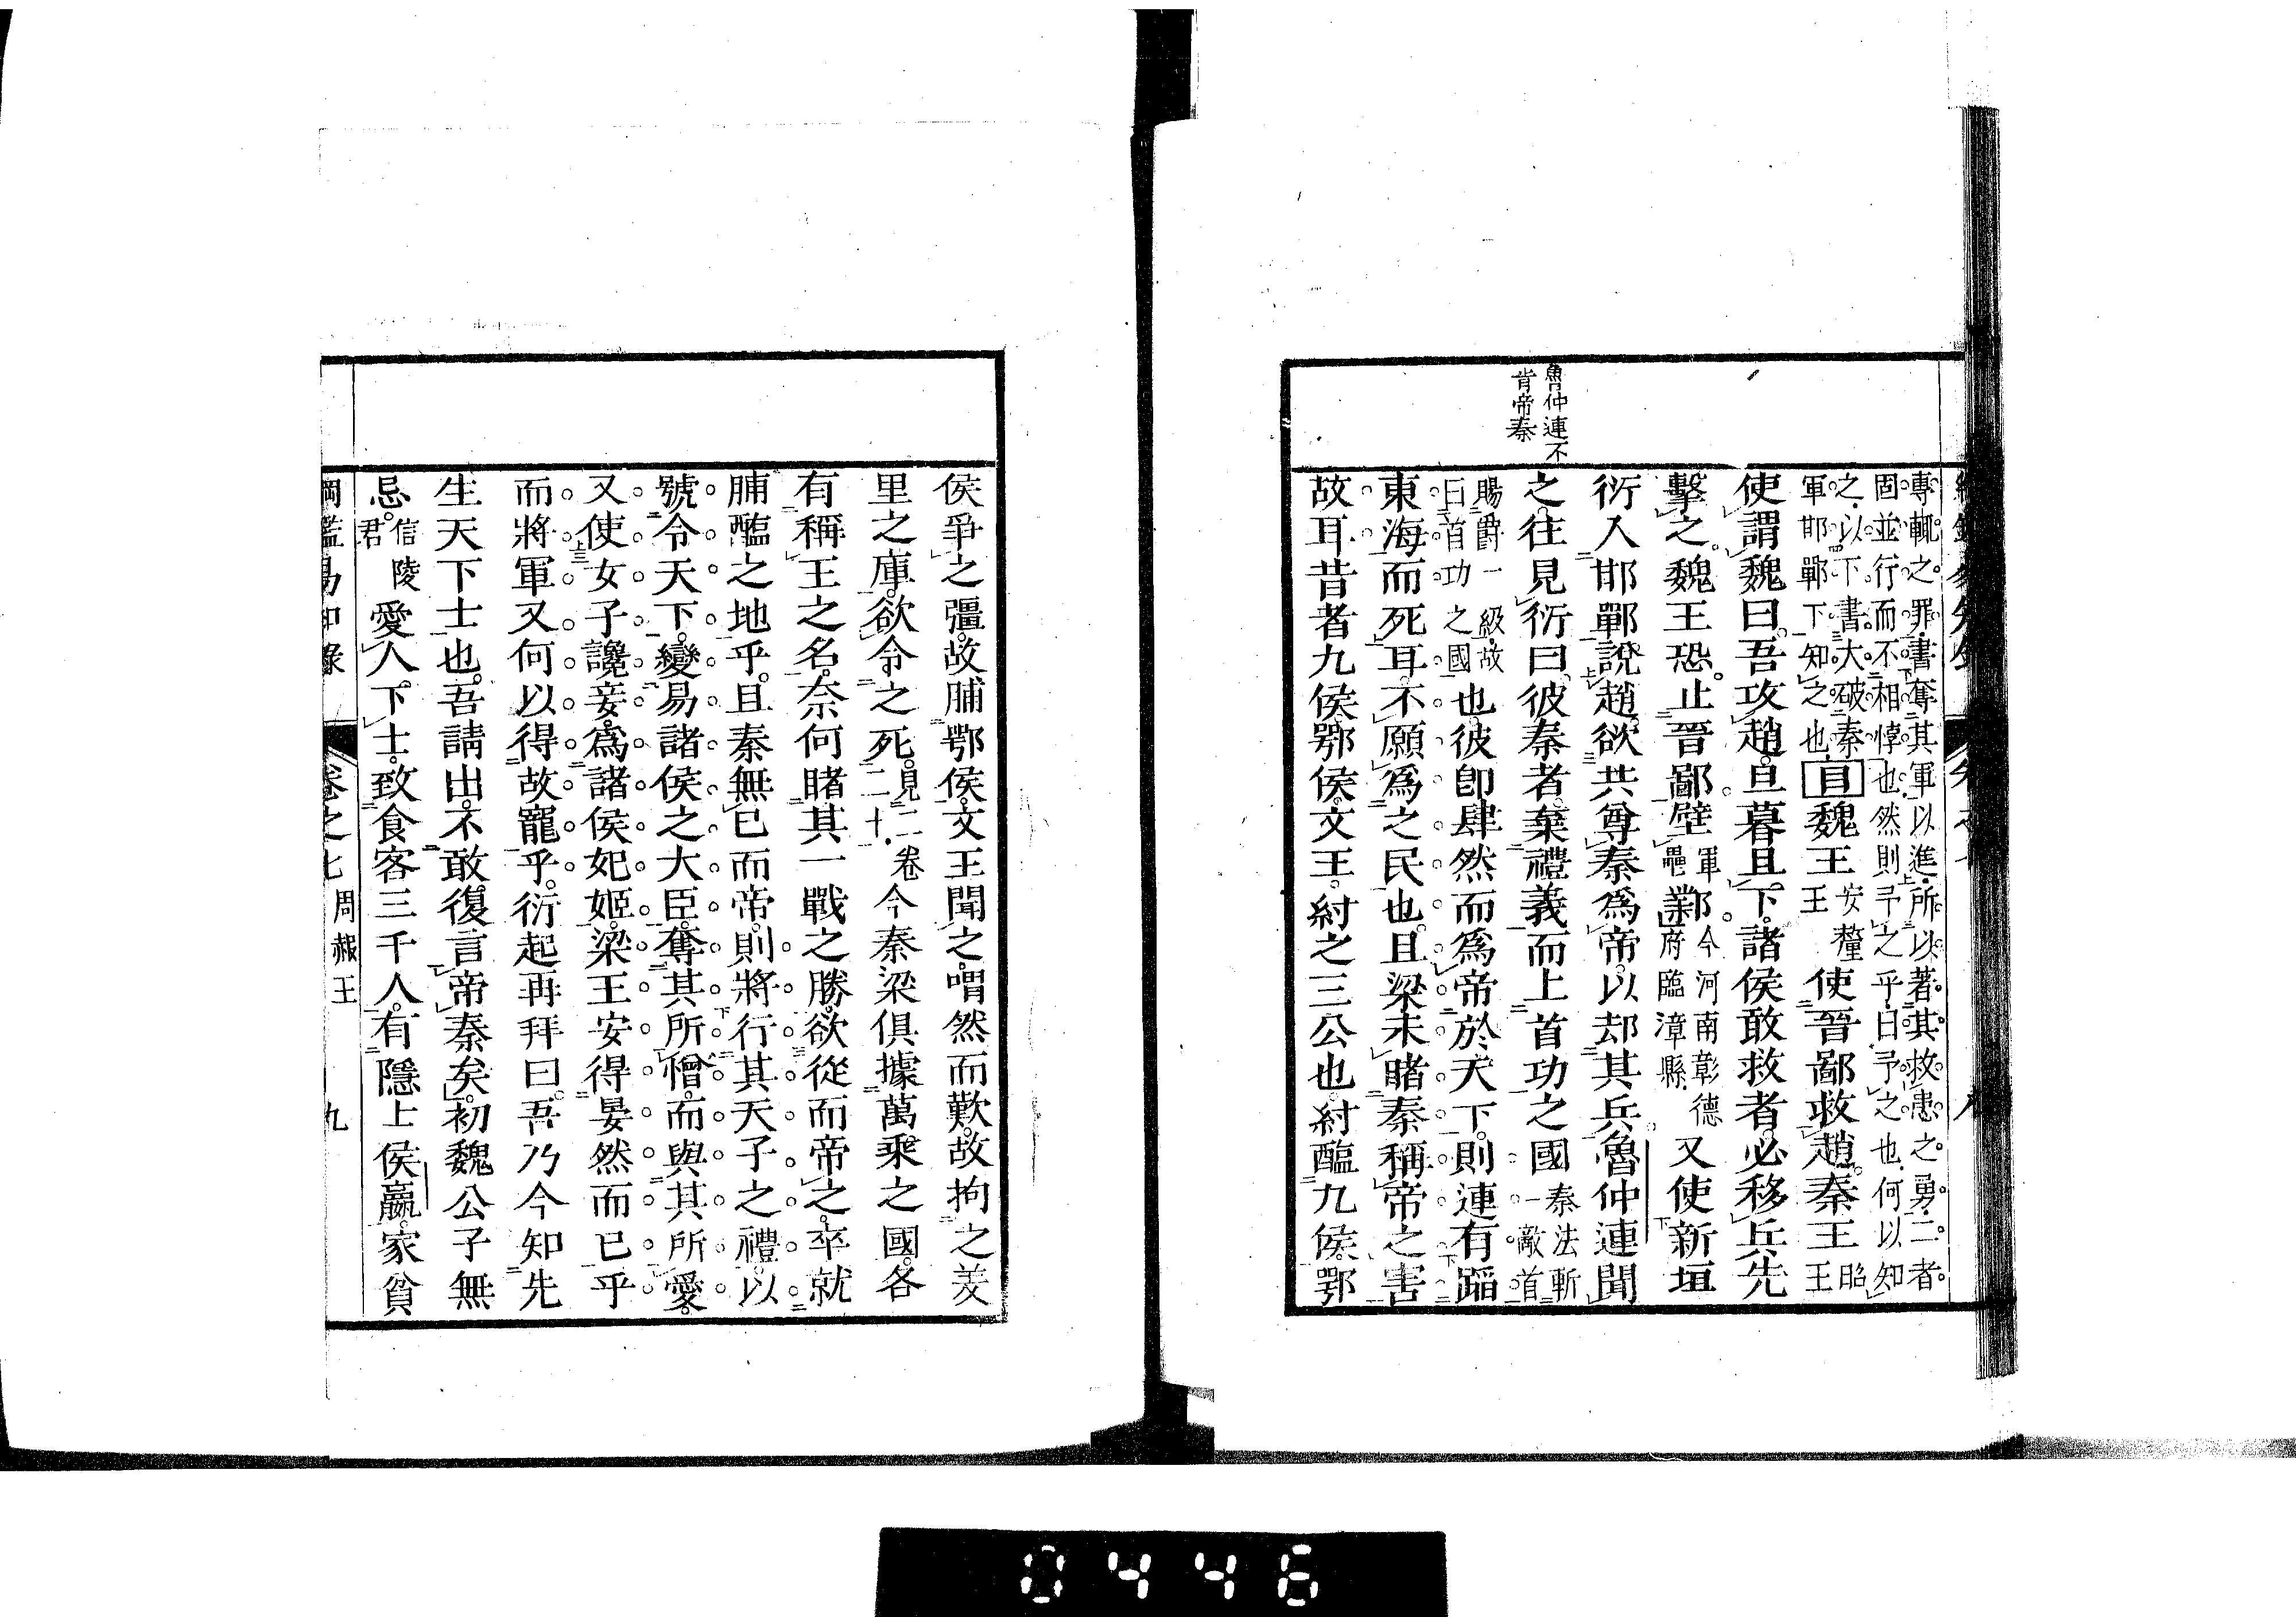 魯仲連不
肯帝秦
專輒之罪書奪其軍以進所以著其救患之勇二者
固並行而不相悖也然則予之乎曰予之也何以知
之以下書大破秦
軍邯鄲下知之也目魏王安釐王使晉鄙救趙秦王昭王
使謂魏曰吾攻趙旦暮且下諸侯敢救者必移兵先
擊之魏王恐止晉鄙壁軍壘鄴業今河南彰德府臨漳縣又使新垣
衍入邯鄲說趙欲共尊秦爲帝以却其兵魯仲連聞
之往見衍曰彼秦者棄禮義而上首功之國秦法斬一敵首
賜爵一級故曰首功之國也彼卽肆然而爲帝於天下則連有蹈
東海而死耳不願爲之民也且梁未睹秦稱帝之害
故耳昔者九侯鄂侯文王紂之三公也紂醢九侯鄂
侯爭之彊故脯鄂侯文王聞之喟然而歎故拘之羑
里之庫欲令之死見二卷二十今秦梁俱據萬乘之國各
有稱王之名奈何睹其一戰之勝欲從而帝之卒就
脯醢之地乎且秦無已而帝則將行其天子之禮以
號令天下變易諸侯之大臣奪其所憎而與其所愛
又使女子讒妾爲諸侯妃姬梁王安得晏然而已乎
而將軍又何以得故寵乎衍起再拜曰吾乃今知先
生天下士也吾請出不敢復言帝秦矣初魏公子無
忌信陵君愛人下士致食客三千人有隱士侯嬴家貧
綱鑑易知錄 卷之七 周赧王 九
0446